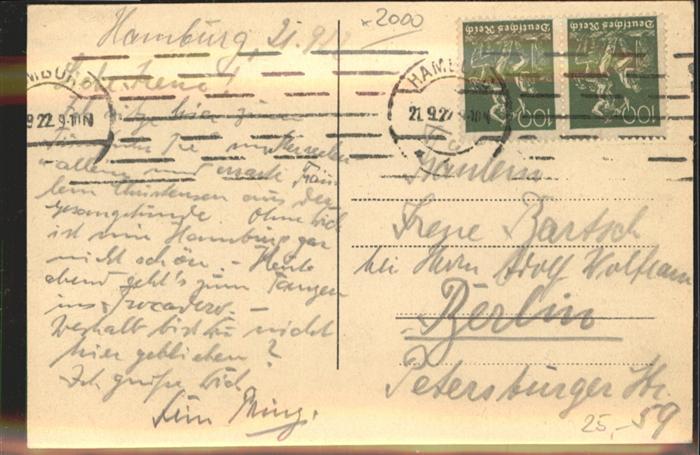 Hamburg, 21.9.22
x 2000
Deutsches Reich
Deutsches Reich
100
100
HAMBURG
21.9.22 9-10 N
Liebe Irene!
Ich sitze hier zum
und
lein Christensen aus der
Gesangstunde. Ohne Dich
ist mir Hamburg gar
nicht schön. – Heute
abend geht's zum Tanzen
ins Trocadero. –
Weshalb bist Du nicht
hier geblieben?
Ich grüße Dich
Dein
Fräulein
Irene Bartsch
bei Herrn Adolf Wolfram
Berlin
Petersburger Str.
59
25,-